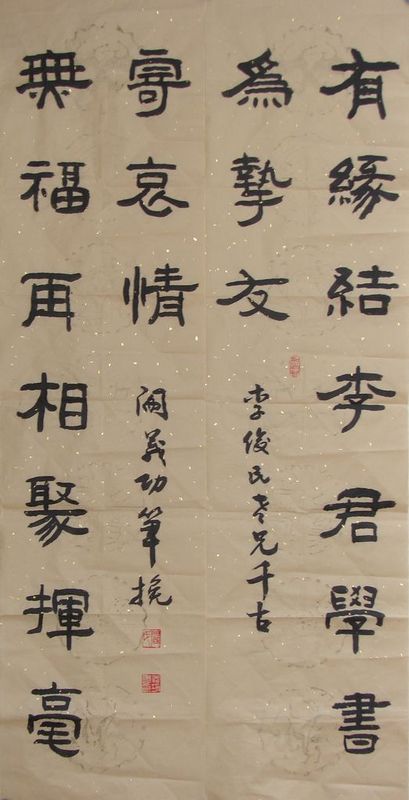 有緣結李君學書
爲摯友
李俊民老兄千古
無福再相聚揮毫
寄哀情
闞義功筆挽